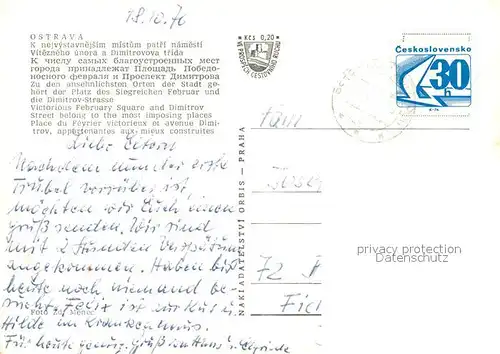 18.10.76
OSTRAVA
K nejvýstavnějším místům patří náměstí
Vítězného února a Dimitrovova třída
К числу самых благоустроенных мест
города принадлежат Площадь Победо-
носного февраля и Проспект Димитрова
Zu den ansehnlichsten Orten der Stadt ge-
hört der Platz des Siegreichen Februar und
die Dimitrov-Strasse
Victorious February Square and Dimitrov
Street belong to the most imposing places
Place du Février victorieux et avenue Dimi-
trov, appartenantes aux mieux construites
Kčs 0,20
VE PROSPĚCH CESTOVNÍHO RUCHU
Československo
30 h
NAKLADATELSTVÍ ORBIS - PRAHA
Liebe Eltern
Nachdem nun der erste
Trubel vorrüber ist,
möchten wir Euch einen
Gruß senden. Wir sind
mit 2 Stunden Verspätung
angekommen. Haben bis
heute noch niemand be-
sucht. Felix ist zur Kur u.
Hilde im Krankenhaus.
Für heute genug. Gruß von Hans u.
Foto
Fam
72
privacy protection
Datenschutz